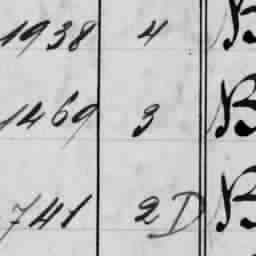 1938 4 B
1469 3 B
741 2D B